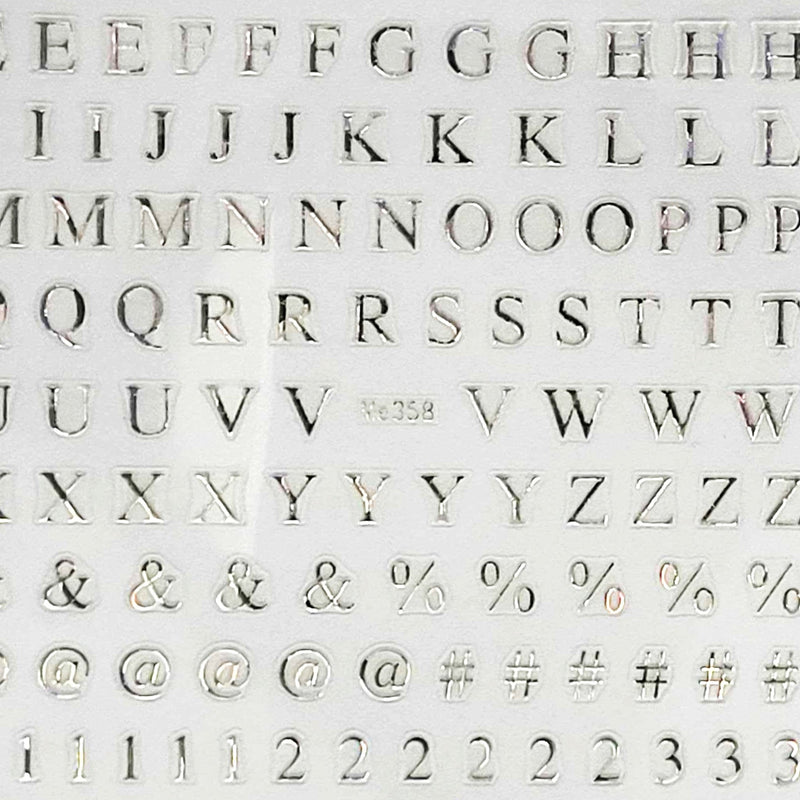 E E E F F F G G G H H H
I I J J J K K K L L L
M M M N N N O O O P P P
Q Q R R R S S S T T T
U U U V V No358 V W W W
X X X X Y Y Y Y Z Z Z Z
& & & & % % % % %
@ @ @ @ @ # # # # # #
1 1 1 1 1 2 2 2 2 2 2 3 3 3